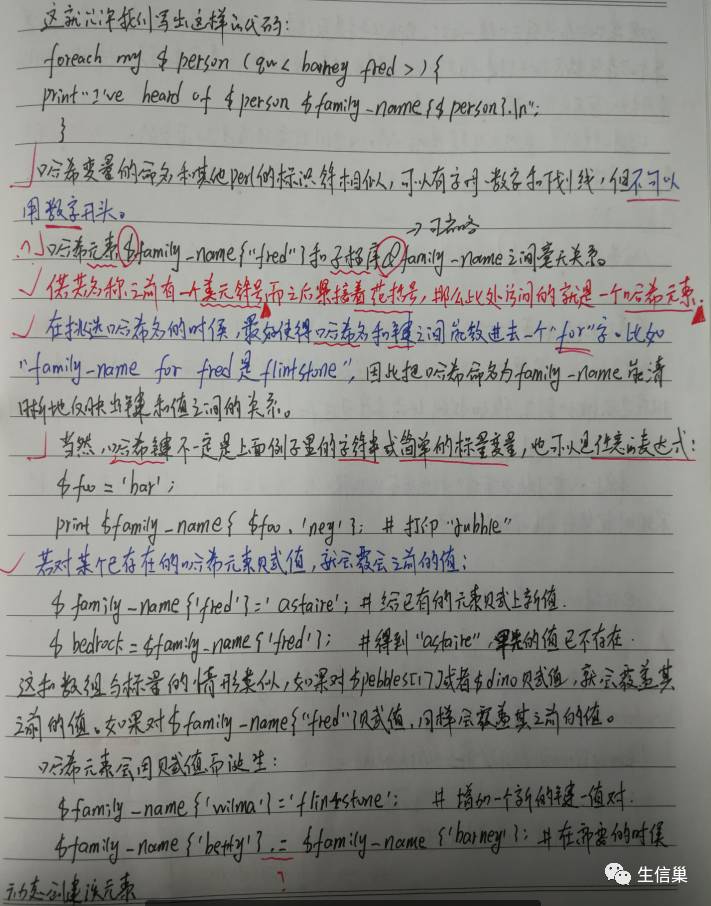 这就允许我们写出这样的代码:
foreach my $person (qw< barney fred >){
print "I've heard of $person $family-name{$person}.\n";
}
哈希变量的命名和其他perl的标识符相似,可以有字母、数字和下划线,但不可以
用数字开头。
→可忽略
?哈希元素$family-name{"fred"}和子程序&family-name之间毫无关系。
✓ 倘若名称之前有一个美元符号而之后紧接着花括号,那么此处访问的就是一个哈希元素.
✓ 在挑选哈希名的时候,最好使得哈希名和键之间能放进去一个"for"字。比如
"family-name for fred 是 flintstone",因此把哈希命名为family-name能清
晰地反映出键和值之间的关系。
当然,哈希键不一定是上面例子里的字符串或简单的标量变量,也可以是任意的表达式:
$foo = 'bar';
print $family-name{ $foo . 'ney' }; # 打印"rubble"
✓ 若对某个已存在的哈希元素赋值,就会覆盖之前的值:
$family-name{'fred'}='astaire'; # 给已有的元素赋上新值.
$bedrock = $family-name{'fred'}; # 得到"astaire",原先的值已不存在.
这和数组与标量的情形类似,如果对$pebbles[17]或者$dino赋值,就会覆盖其
之前的值。如果对$family-name{"fred"}赋值,同样会覆盖其之前的值。
哈希元素会因赋值而诞生:
$family-name{'wilma'}='flintstone'; # 增加一个新的键-值对.
$family-name{'betty'} .= $family-name{'barney'}; # 在需要的时候
?
动态创建该元素
生信巢